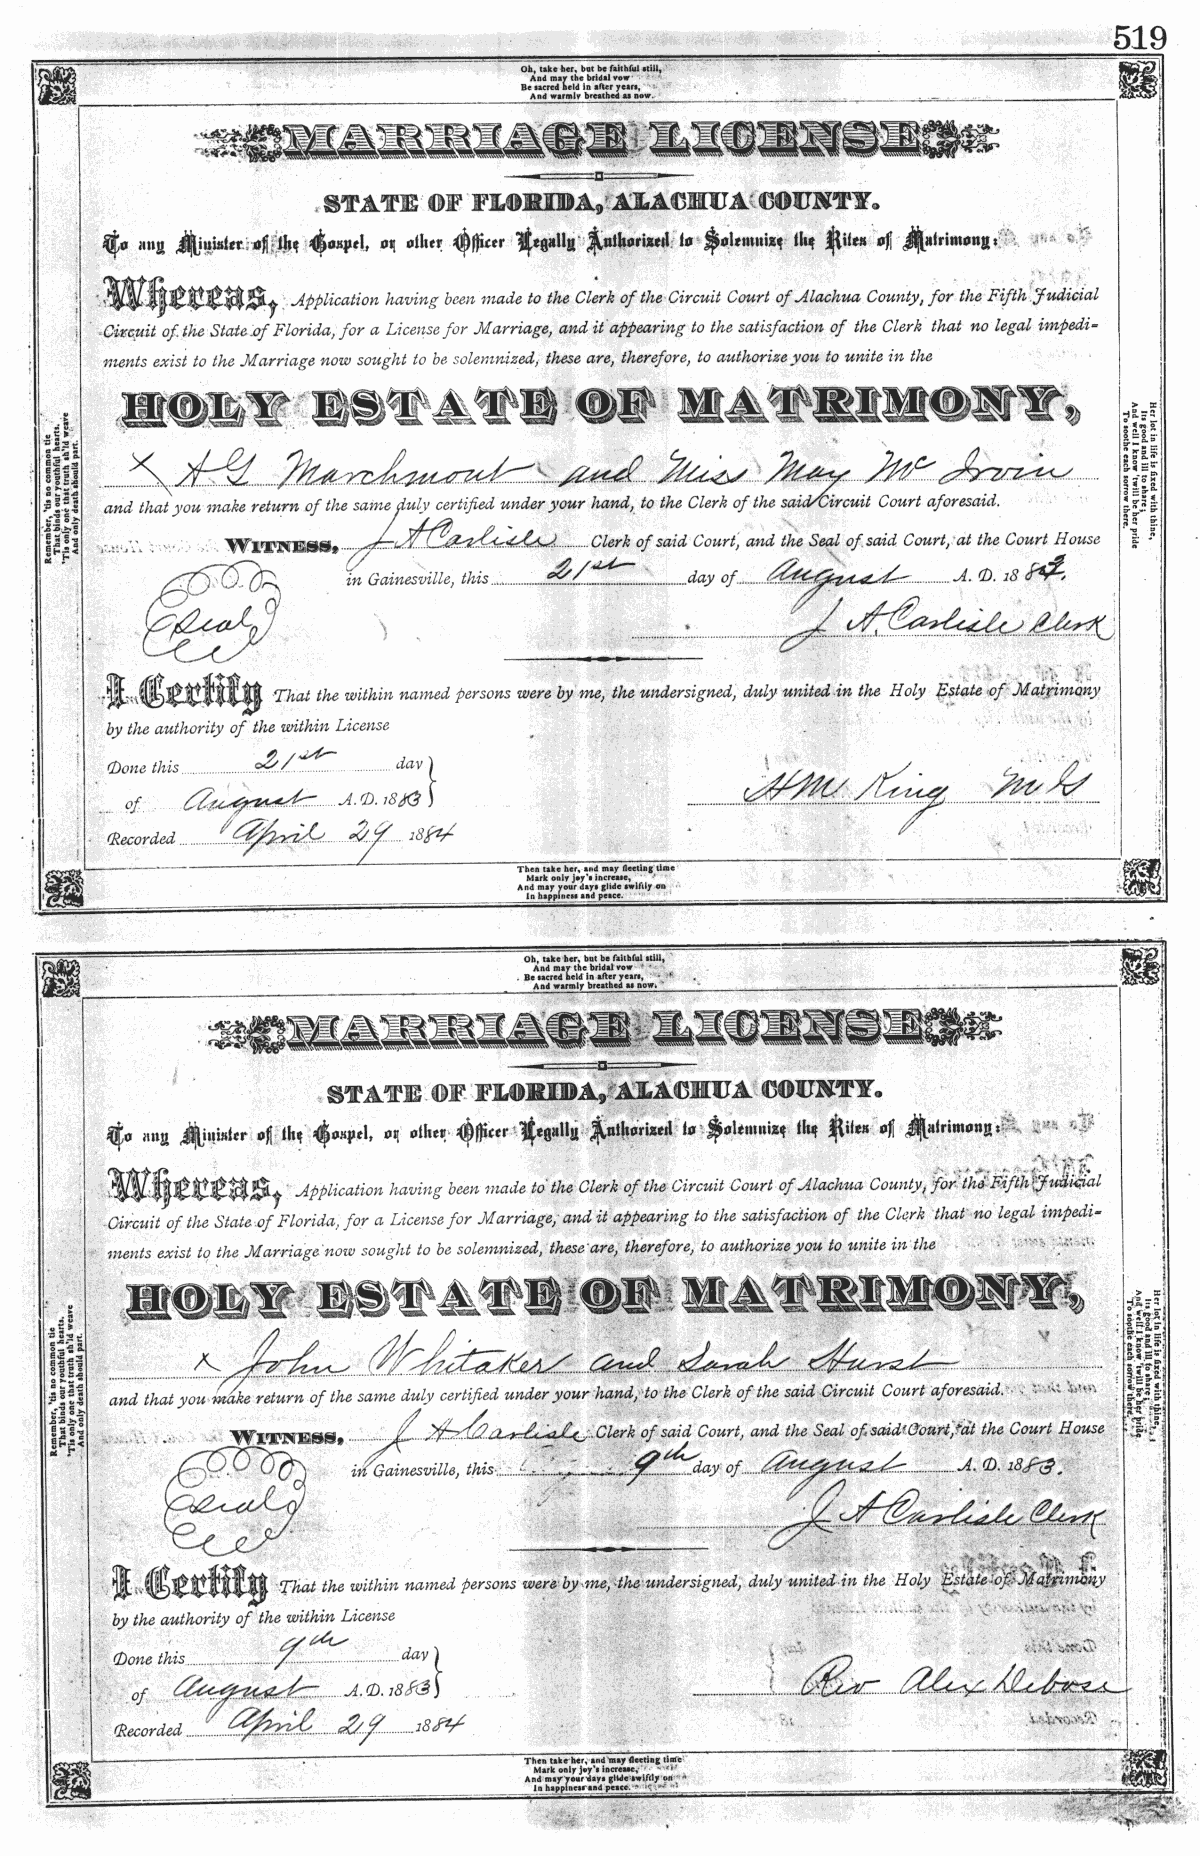 519
Oh, take her, but be faithful still,
And may the bridal vow
Be sacred held in after years,
And warmly breathed as now.
MARRIAGE LICENSE
STATE OF FLORIDA, ALACHUA COUNTY.
To any Minister of the Gospel, or other Officer Legally Authorized to Solemnize the Rites of Matrimony:
Whereas, Application having been made to the Clerk of the Circuit Court of Alachua County, for the Fifth Judicial
Circuit of the State of Florida, for a License for Marriage, and it appearing to the satisfaction of the Clerk that no legal impedi-
ments exist to the Marriage now sought to be solemnized, these are, therefore, to authorize you to unite in the
HOLY ESTATE OF MATRIMONY,
x A G Marchmont and Miss May Mc Irvin
and that you make return of the same duly certified under your hand, to the Clerk of the said Circuit Court aforesaid.
WITNESS, J A Carlisle Clerk of said Court, and the Seal of said Court, at the Court House
in Gainesville, this 21st day of August A. D. 1883.
Seal
J A. Carlisle Clerk
I Certify That the within named persons were by me, the undersigned, duly united in the Holy Estate of Matrimony
by the authority of the within License
Done this 21st day
of August A.D. 1883
H Mc King M G
Recorded April 29 1884
Remember, 'tis no common tie
That binds our youthful hearts.
'Tis only one that truth sh'ld weave
And only death should part.
Her lot in life is fixed with thine,
Its good and ill to share;
And well I know 'twill be her pride
To soothe each sorrow there.
Then take her, and may fleeting time
Mark only joy's increase,
And may your days glide swiftly on
In happiness and peace.
Oh, take her, but be faithful still,
And may the bridal vow
Be sacred held in after years,
And warmly breathed as now.
MARRIAGE LICENSE
STATE OF FLORIDA, ALACHUA COUNTY.
To any Minister of the Gospel, or other Officer Legally Authorized to Solemnize the Rites of Matrimony:
Whereas, Application having been made to the Clerk of the Circuit Court of Alachua County, for the Fifth Judicial
Circuit of the State of Florida, for a License for Marriage, and it appearing to the satisfaction of the Clerk that no legal impedi-
ments exist to the Marriage now sought to be solemnized, these are, therefore, to authorize you to unite in the
HOLY ESTATE OF MATRIMONY,
x John Whitaker and Sarah Hurst
and that you make return of the same duly certified under your hand, to the Clerk of the said Circuit Court aforesaid.
WITNESS, J A Carlisle Clerk of said Court, and the Seal of said Court, at the Court House
in Gainesville, this 9th day of August A. D. 1883.
Seal
J A Carlisle Clerk
I Certify That the within named persons were by me, the undersigned, duly united in the Holy Estate of Matrimony
by the authority of the within License
Done this 9th day
of August A.D. 1883
Rev Alex Debose
Recorded April 29 1884
Remember, 'tis no common tie
That binds our youthful hearts.
'Tis only one that truth sh'ld weave
And only death should part.
Her lot in life is fixed with thine,
Its good and ill to share;
And well I know 'twill be her pride
To soothe each sorrow there.
Then take her, and may fleeting time
Mark only joy's increase,
And may your days glide swiftly on
In happiness and peace.